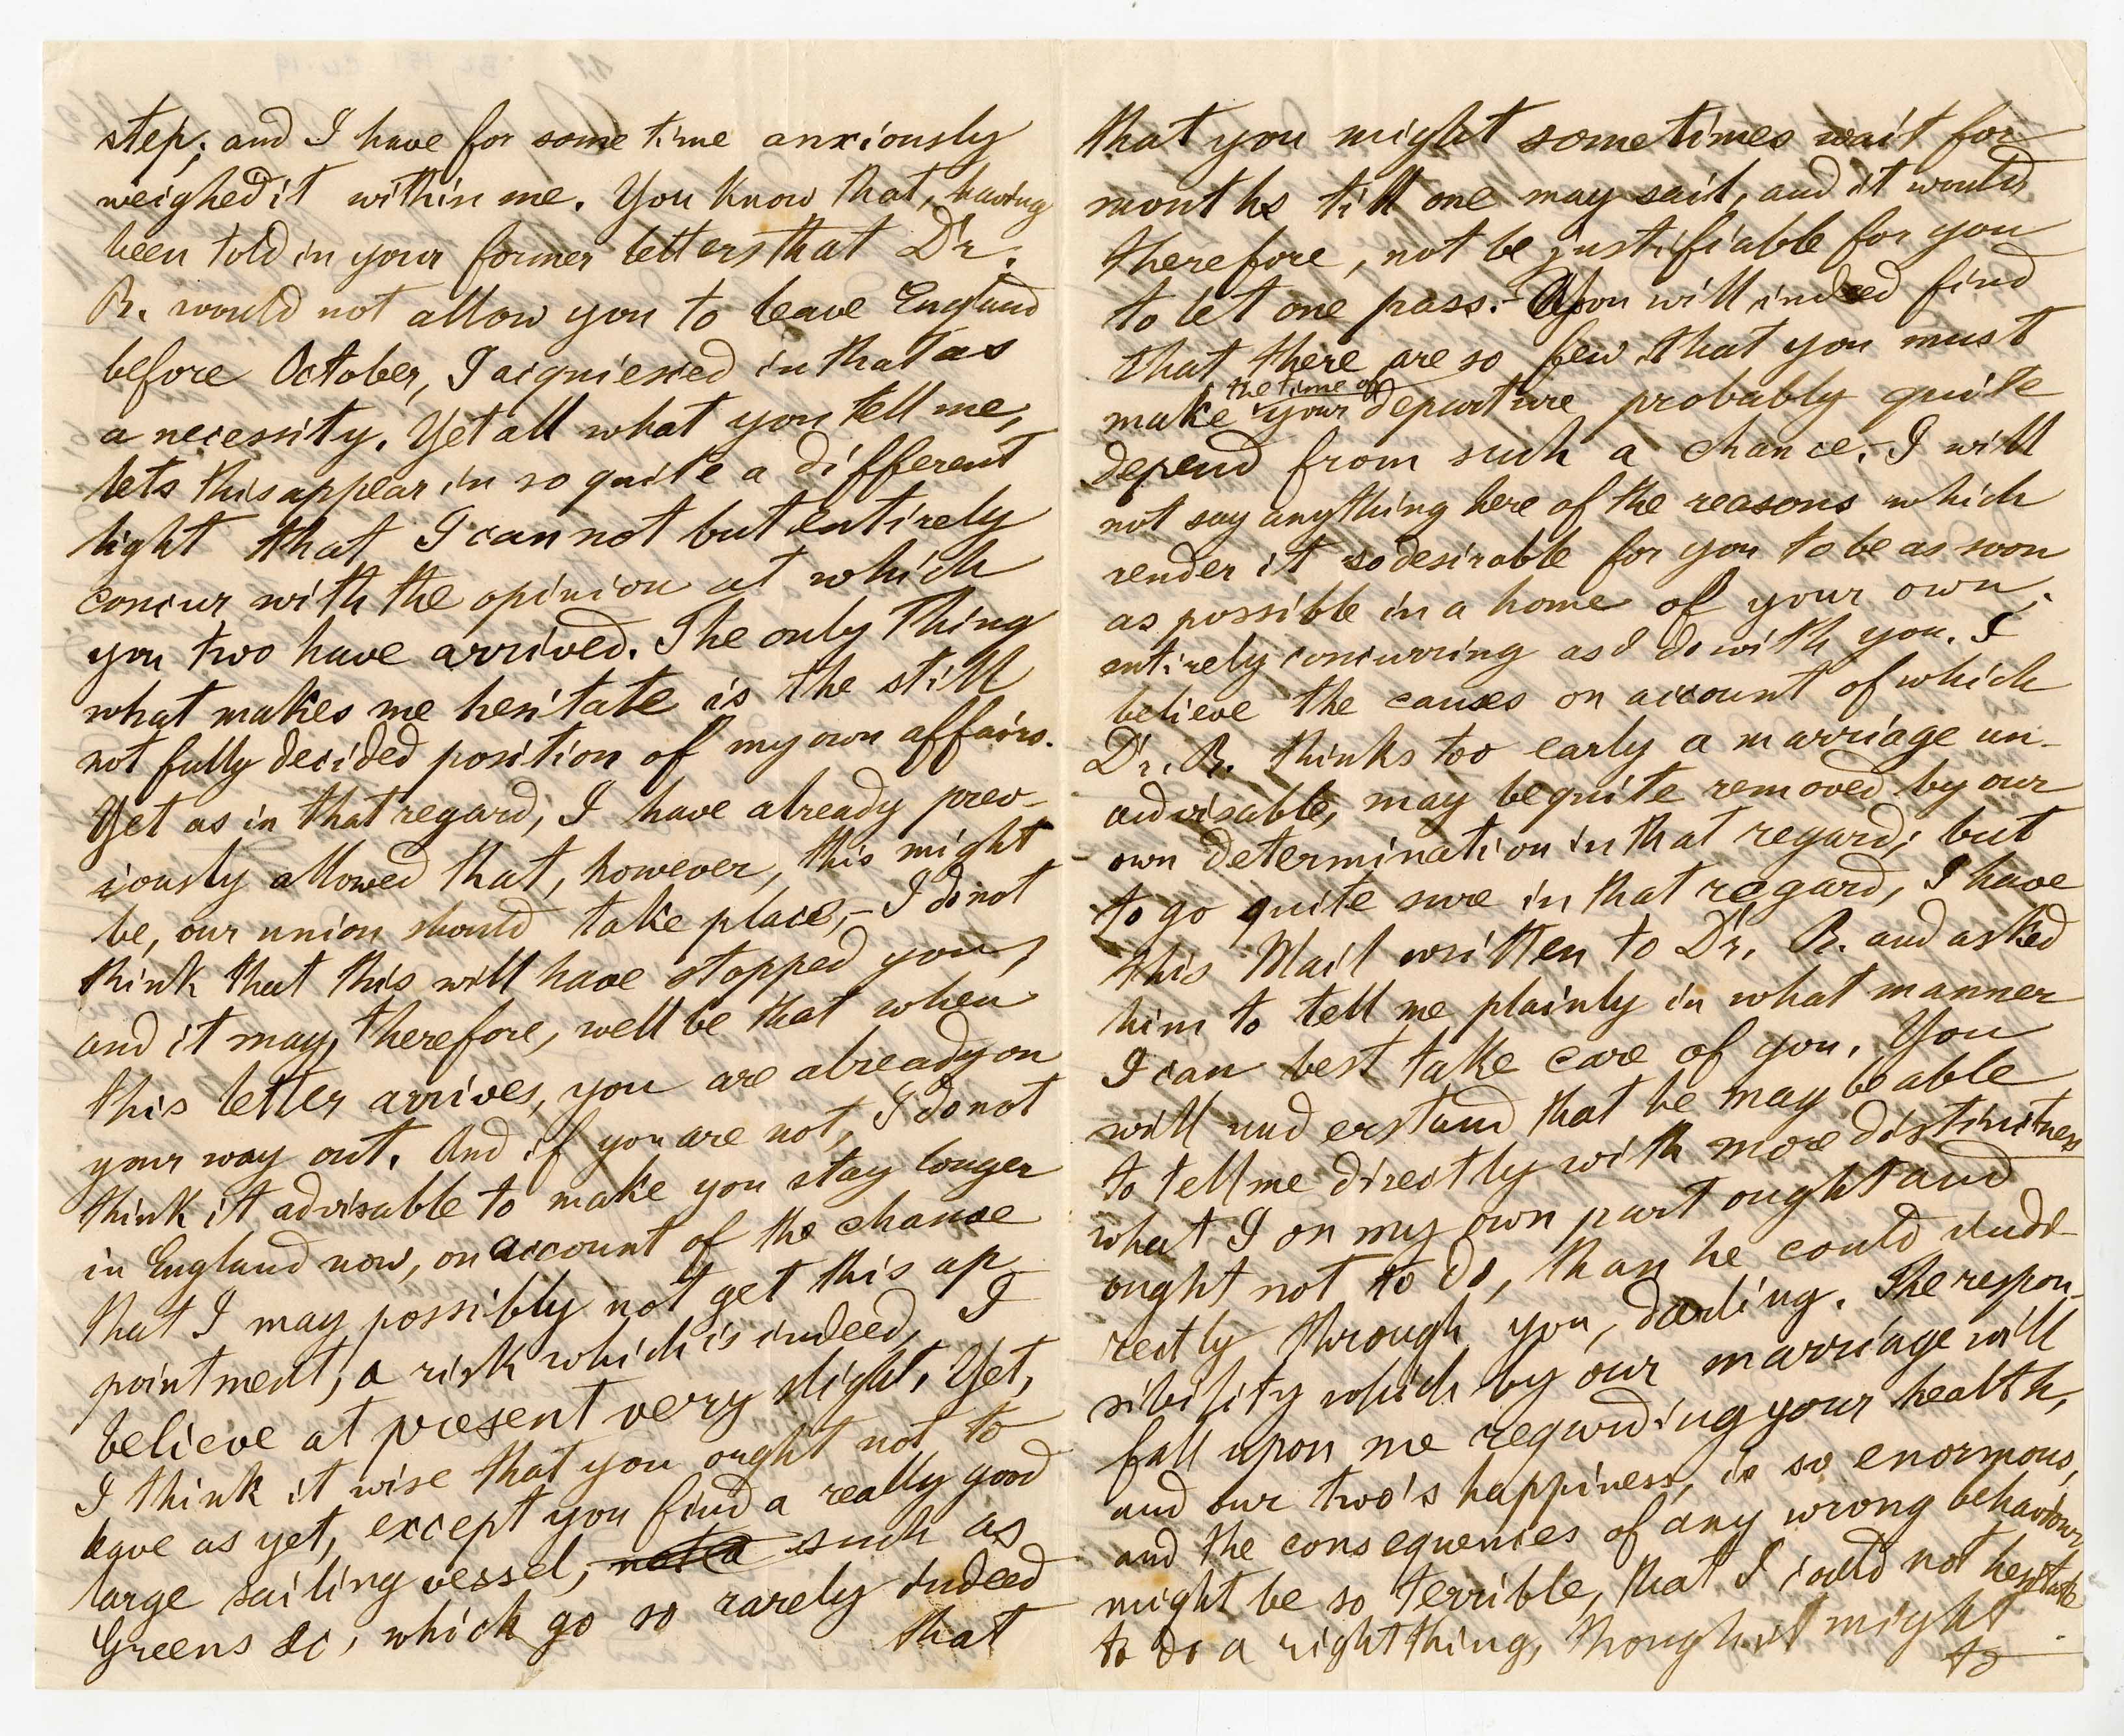 step; and I have for some time anxiously
weighed it within me. You know that, having
been told in your former letters that Dr.
R. would not allow you to leave England
before October, I acquiesced in that as
a necessity. Yet all what you tell me,
lets this appear in so quite a different
light that I can not but entirely
concur with the opinion at which
you two have arrived. The only thing
what makes me hesitate is the still
not fully decided position of my own affairs.
Yet as in that regard, I have already prev-
iously allowed that, however, this might
be, our union should take place, – I do not
think that this will have stopped you,
and it may, therefore, well be that when
this letter arrives, you are already on
your way out. And if you are not, I do not
think it advisable to make you stay longer
in England now, on account of the chance
that I may possibly not get this ap-
pointment; a risk which is indeed, I
believe at present very slight. Yet,
I think it wise that you ought not to
leave as yet, except you find a really good
large sailing vessel, such as
Greens &c, which go so rarely indeed
that
that you might sometimes wait for
months till one may sail, and it would
therefore, not be justifiable for you
to let one pass. – You will indeed find
that there are so few that you must
make the time of your departure probably quite
depend from such a chance. – I will
not say anything here of the reasons which
render it so desirable for you to be as soon
as possible in a home of your own,
entirely concurring as I do with you. I
believe the causes on account of which
Dr. R. thinks too early a marriage un-
advisable, may be quite removed by our
own determination in that regard; but
to go quite sure in that regard, I have
this Mail written to Dr. R. and asked
him to tell me plainly in what manner
I can best take care of you. You
will understand that he may be able
to tell me directly with more distinctness
what I on my own part ought and
ought not to do, than he could indi-
rectly through you, darling. The respon-
sibility which by our marriage will
fall upon me regarding your health,
and our two's happiness, is so enormous,
and the consequences of any wrong behaviour
might be so terrible, that I could not hesitate
to do a right thing, though it might
to